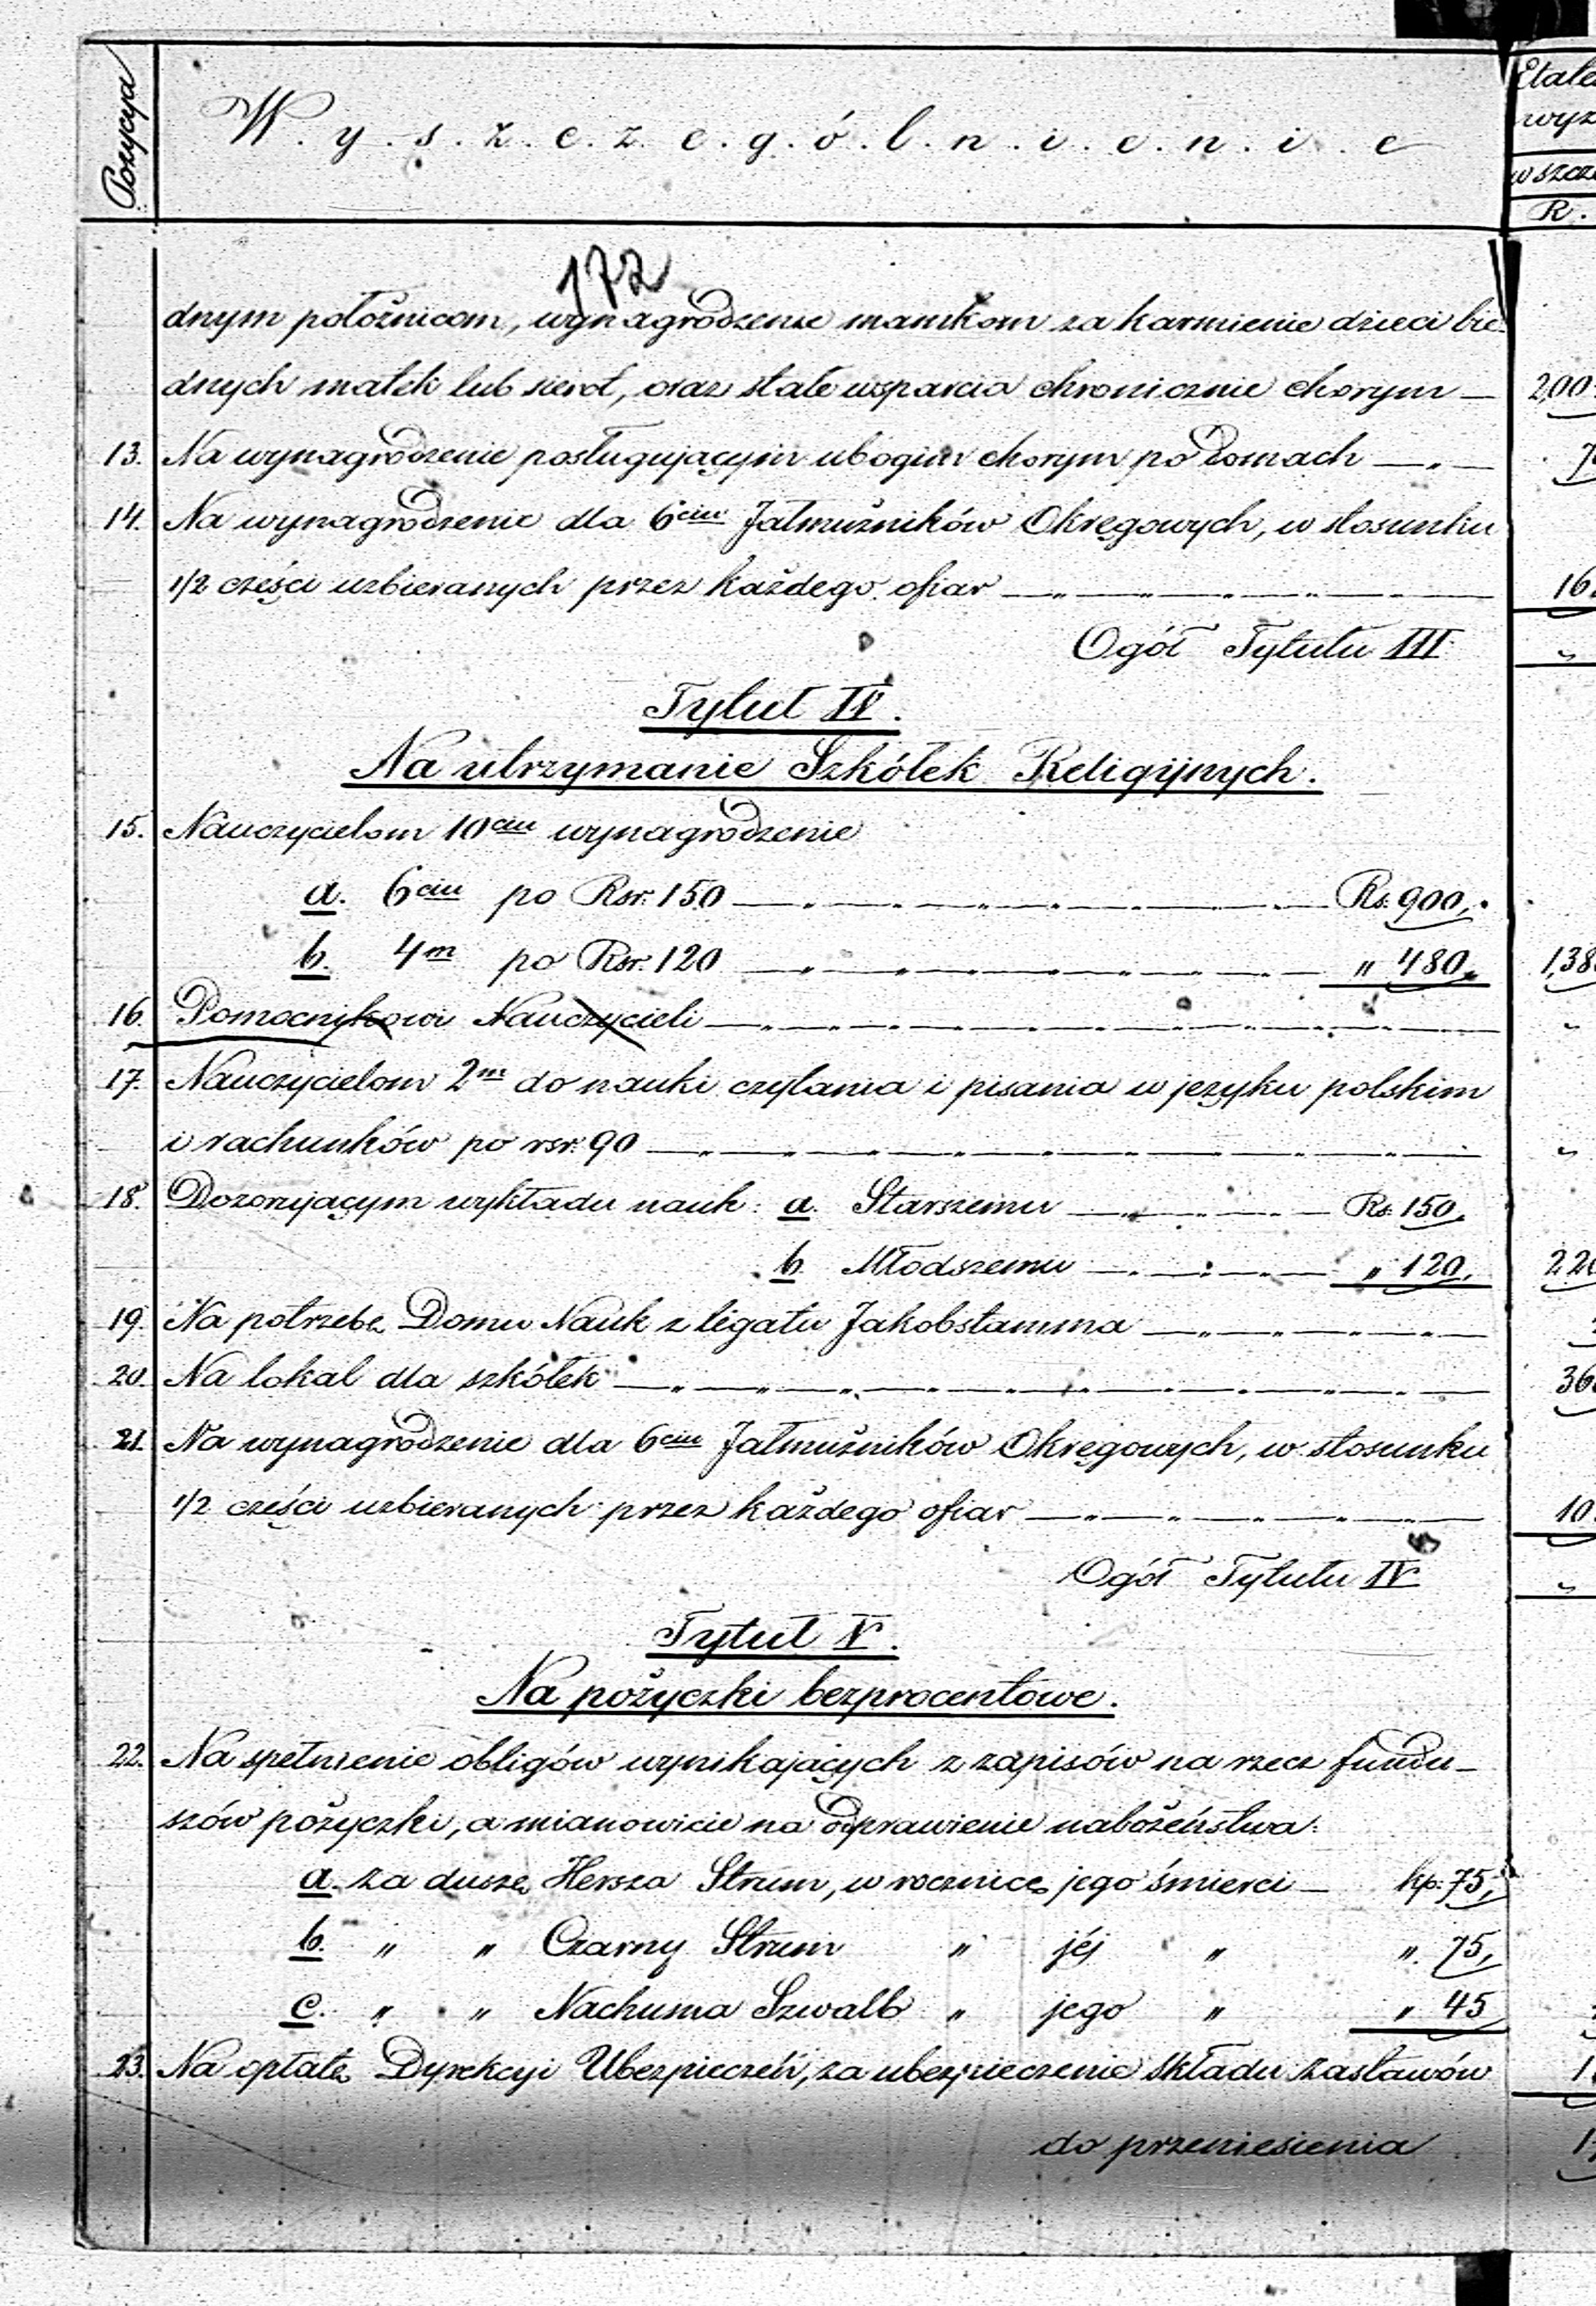 Pozycya
W.y.s.z.c.z.e.g.ó.l.n.i.e.n.i.e
wyz
w szcz
R.
172
dnym położnicom, wynagrodzenie mamkom za karmienie dzieci bie-
dnych matek lub sierot, oraz stałe wsparcia chronicznie chorym — 2,00
13. Na wynagrodzenie posługującym ubogim chorym po domach — „ —
14. Na wynagrodzenie dla 6ciu Jałmużników Okręgowych, w stosunku
1/2 części uzbieranych przez każdego ofiar — „ — „ — 16
Ogół Tytułu III „
Tytuł IV.
Na utrzymanie Szkółek Religijnych.
15. Nauczycielom 10ciu wynagrodzenie
a. 6ciu po Rsr. 150 — „ — „ — Rs. 900,
b. 4m po Rsr. 120 — „ — „ — „ 480. 1,38
16. Pomocnikowi Nauczycieli — „ — „ — „
17. Nauczycielom 2m do nauki czytania i pisania w języku polskim
i rachunków po rsr. 90 — „ — „ — „
18. Dozorującym wykładu nauk: a. Starszemu — „ — Rs. 150,
b. Młodszemu — „ — „ 120, 220
19. Na potrzebę Domu Nauk z legatu Jakobstamma — „ — „ —
20. Na lokal dla szkółek — „ — „ — 36
21. Na wynagrodzenie dla 6ciu Jałmużników Okręgowych, w stosunku
1/2 części uzbieranych przez każdego ofiar — „ — „ — 10
Ogół Tytułu IV „
Tytuł V.
Na pożyczki bezprocentowe.
22. Na spełnienie obligów wynikających z zapisów na rzecz fundu-
szów pożyczki, a mianowicie na odprawienie nabożeństwa:
a. za duszę Hersza Strum, w rocznicę jego śmierci — kp. 75,
b. „ „ Czarny Strum „ jéj „ „ 75,
c. „ „ Nachuma Szwalb „ jego „ „ 45
23. Na opłatę Dyrekcyi Ubezpieczeń, za ubezpieczenie składu zastawów 1
do przeniesienia 1